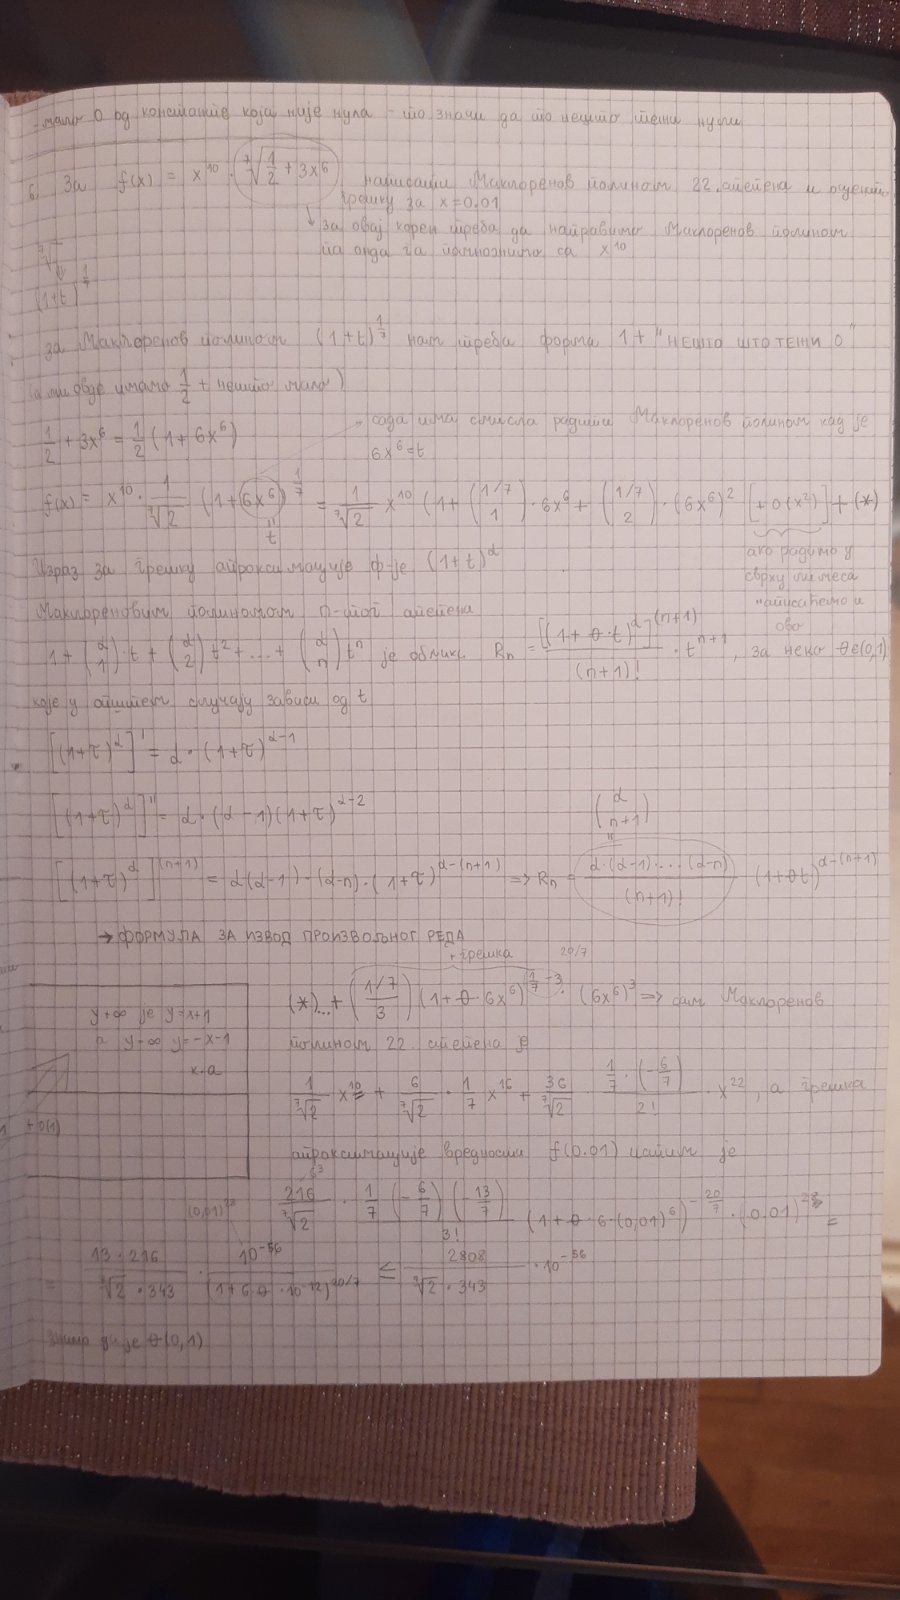 - мало о од константе која није нула - то значи да то нешто тежи нули
6. За f(x) = x^10 · ⁷√(1/2 + 3x^6) написати Маклоренов полином 22. степена и оценити
грешку за x = 0.01
↳ за овај корен треба да направимо Маклоренов полином
па онда га помножимо са x^10
⁷√
(1+t)^(1/7)
за Маклоренов полином (1+t)^(1/7) нам треба форма 1 + "НЕШТО ШТО ТЕЖИ 0"
(а ми овде имамо 1/2 + нешто мало)
1/2 + 3x^6 = 1/2 (1 + 6x^6)
→ сада има смисла радити Маклоренов полином кад је
6x^6 = t
f(x) = x^10 · 1/⁷√2 (1 + 6x^6)^(1/7) = 1/⁷√2 x^10 (1 + (1/7 1) · 6x^6 + (1/7 2) · (6x^6)^2 [+ o(x^2)] + (*)
" t
ако радимо у
сврху лимеса
"
ово
Израз за грешку апроксимације ф-је (1+t)^α
Маклореновим полиномом n-тог степена
1 + (α 1) · t + (α 2) t^2 + ... + (α n) t^n је облика R_n = [(1 + θ·t)^α]^(n+1) / (n+1)! · t^(n+1), за неко θ∈(0,1)
које у општем случају зависи од t
[(1+τ)^α]' = α · (1+τ)^(α-1)
[(1+τ)^α]'' = α · (α-1)(1+τ)^(α-2)
(α n+1)
"
[(1+τ)^α]^(n+1) = α(α-1)···(α-n) · (1+τ)^(α-(n+1)) => R_n = α·(α-1)·...·(α-n) / (n+1)! · (1+θt)^(α-(n+1))
→ ФОРМУЛА ЗА ИЗВОД ПРОИЗВОЉНОГ РЕДА
+ грешка 20/7
(*)...+ (1/7 3) (1 + θ·6x^6)^(1/7 - 3) · (6x^6)^3 => дат Маклоренов
полином 22. степена је
y +∞ је y = x+1
а y -∞ y = -x-1
к.а
+ o(1)
1/⁷√2 x^10 + 6/⁷√2 · 1/7 x^16 + 36/⁷√2 1/7 · (-6/7) / 2! · x^22, а грешка
апроксимације вредности f(0.01) истим је
6^3
216/⁷√2 · 1/7 (-6/7) (-13/7) / 3! (1 + θ·6·(0,01)^6)^(-20/7) · (0.01)^28 =
(0,01)^28
= 13·216 / ⁷√2·343 · 10^-56 / (1+6·θ·10^-12)^(20/7) ≤ 2808 / ⁷√2·343 · 10^-56
знамо да је θ(0,1)